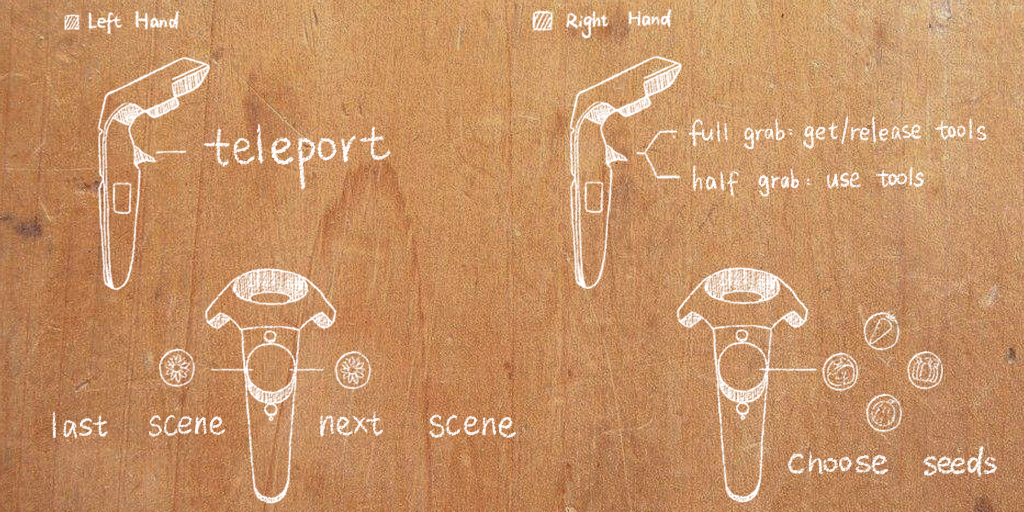 Left Hand
teleport
last scene
next scene
Right Hand
full grab: get/release tools
half grab: use tools
choose seeds